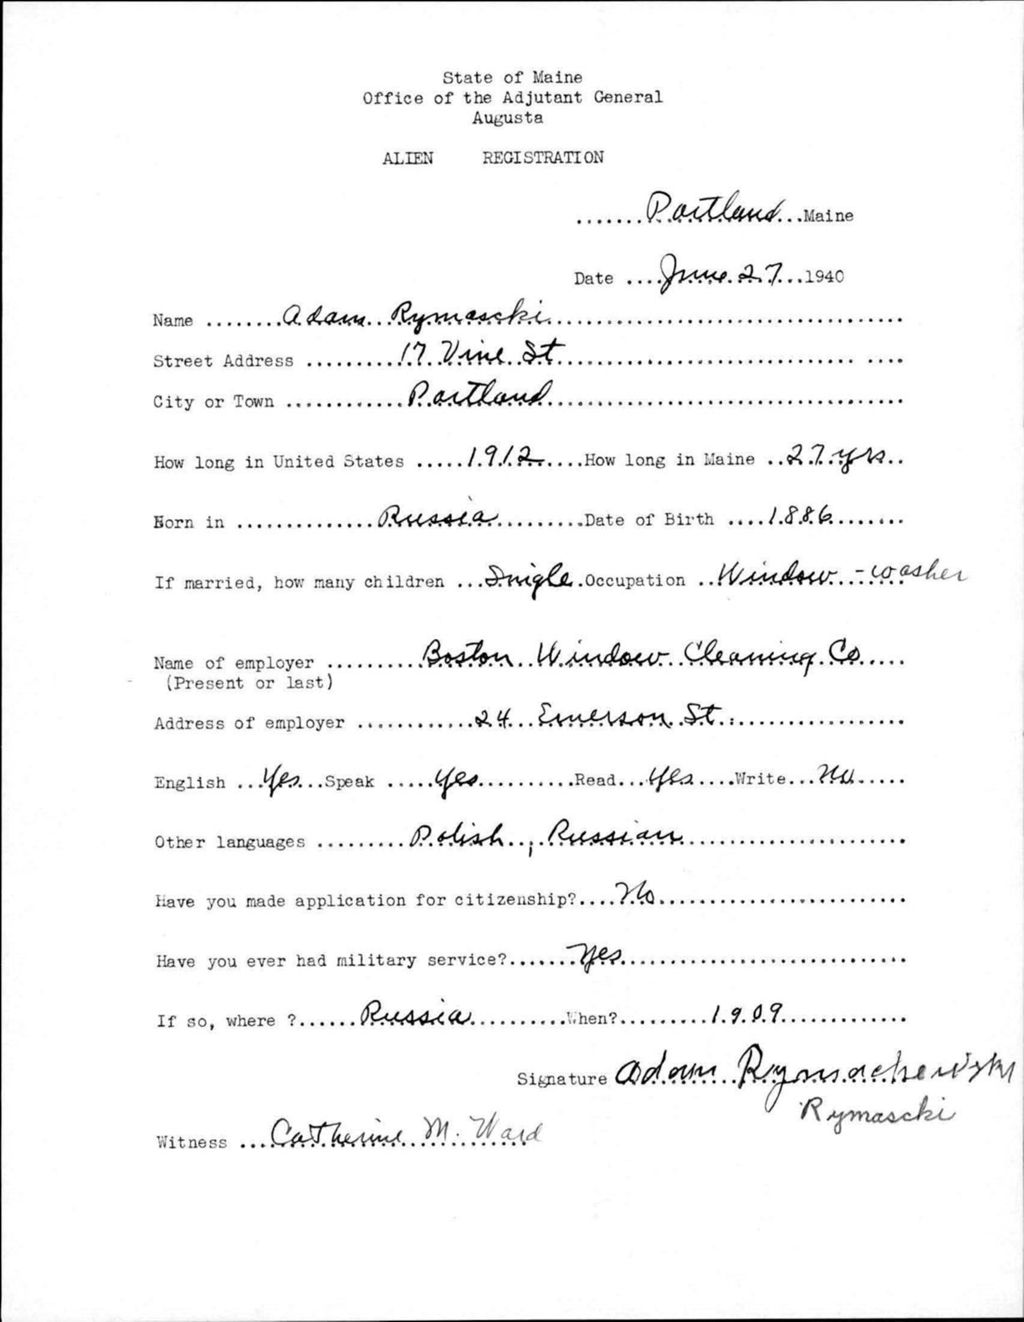 State of Maine
Office of the Adjutant General
Augusta
ALIEN REGISTRATION
.......Portland...Maine
Date ....June 27...1940
Name ........Adam Rymascki....................................
Street Address .........17 Vine St....................................
City or Town ............Portland....................................
How long in United States .....1912.....How long in Maine ..27 yrs..
Born in ..............Russia.........Date of Birth ....1886.......
If married, how many children ...Single.Occupation ..Window-washer
Name of employer .........Boston Window Cleaning Co.....
(Present or last)
Address of employer ............24 Emerson St..................
English ...Yes...Speak .....Yes..........Read...Yes....Write...No.....
Other languages .........Polish, Russian.......................
Have you made application for citizenship?....No.........................
Have you ever had military service?.......Yes............................
If so, where ?......Russia..........When?.........1909.............
Signature Adam Rymachewski
Rymascki
Witness ...Catherine M. Ward